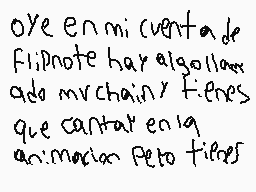 oye en mi cuenta de
Flipnote hay algo llam
ado mv chain y tienes
que cantar en la
animacion pero tienes